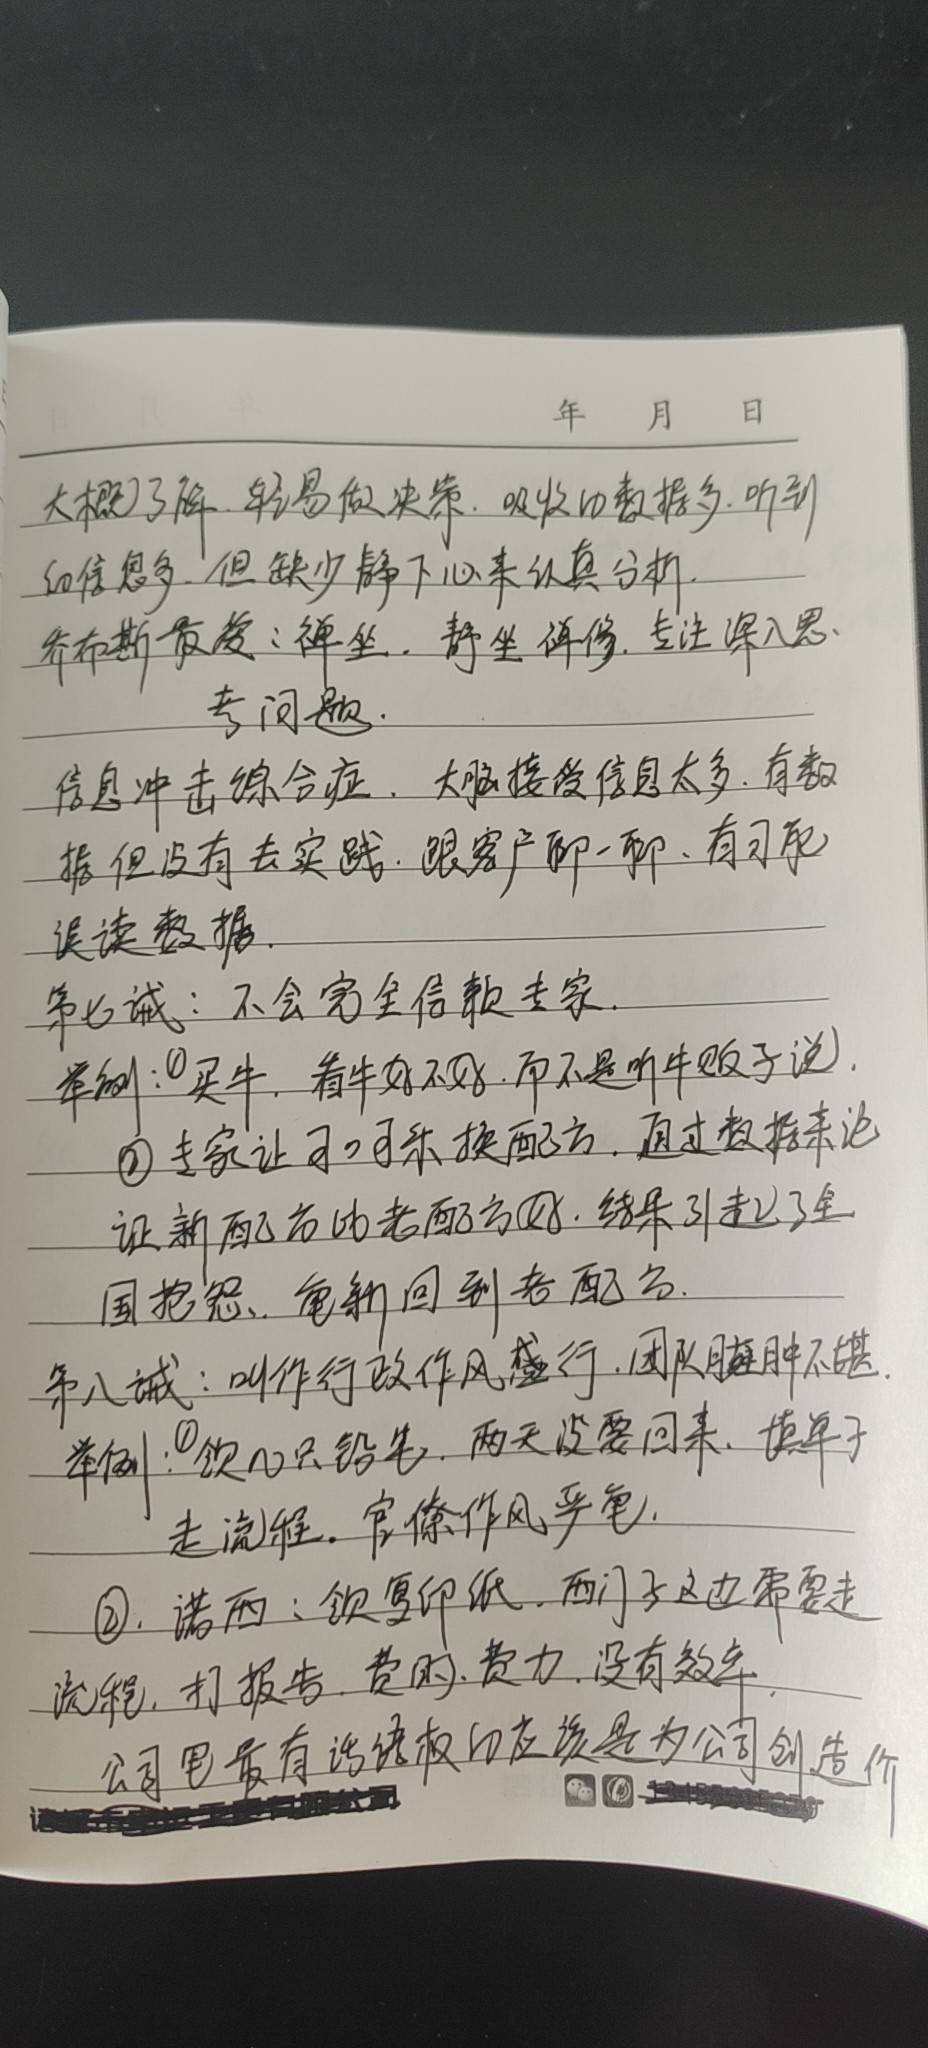 年 月 日
大概了解、轻易做决策、吸收的数据多、听到
的信息多、但缺少静下心来认真分析.
乔布斯最爱：禅坐、静坐禅修、专注深入思、
考问题.
信息冲击综合症、大脑接受信息太多、有数
据但没有去实践、跟客户聊一聊、有可能
误读数据.
第七诫：不会完全信赖专家.
举例：①买牛、看牛好不好、而不是听牛贩子说.
②专家让可口可乐换配方、通过数据来论
证新配方比老配方好、结果引起了全
国抱怨、重新回到老配方.
第八诫：叫作行政作风盛行、团队臃肿不堪.
举例：①领几只铅笔、两天没要回来、填单子
走流程。官僚作风严重.
②、诺西：领复印纸、西门子这边需要走
流程、打报告、费时、费力、没有效率.
公司里最有话语权的应该是为公司创造价